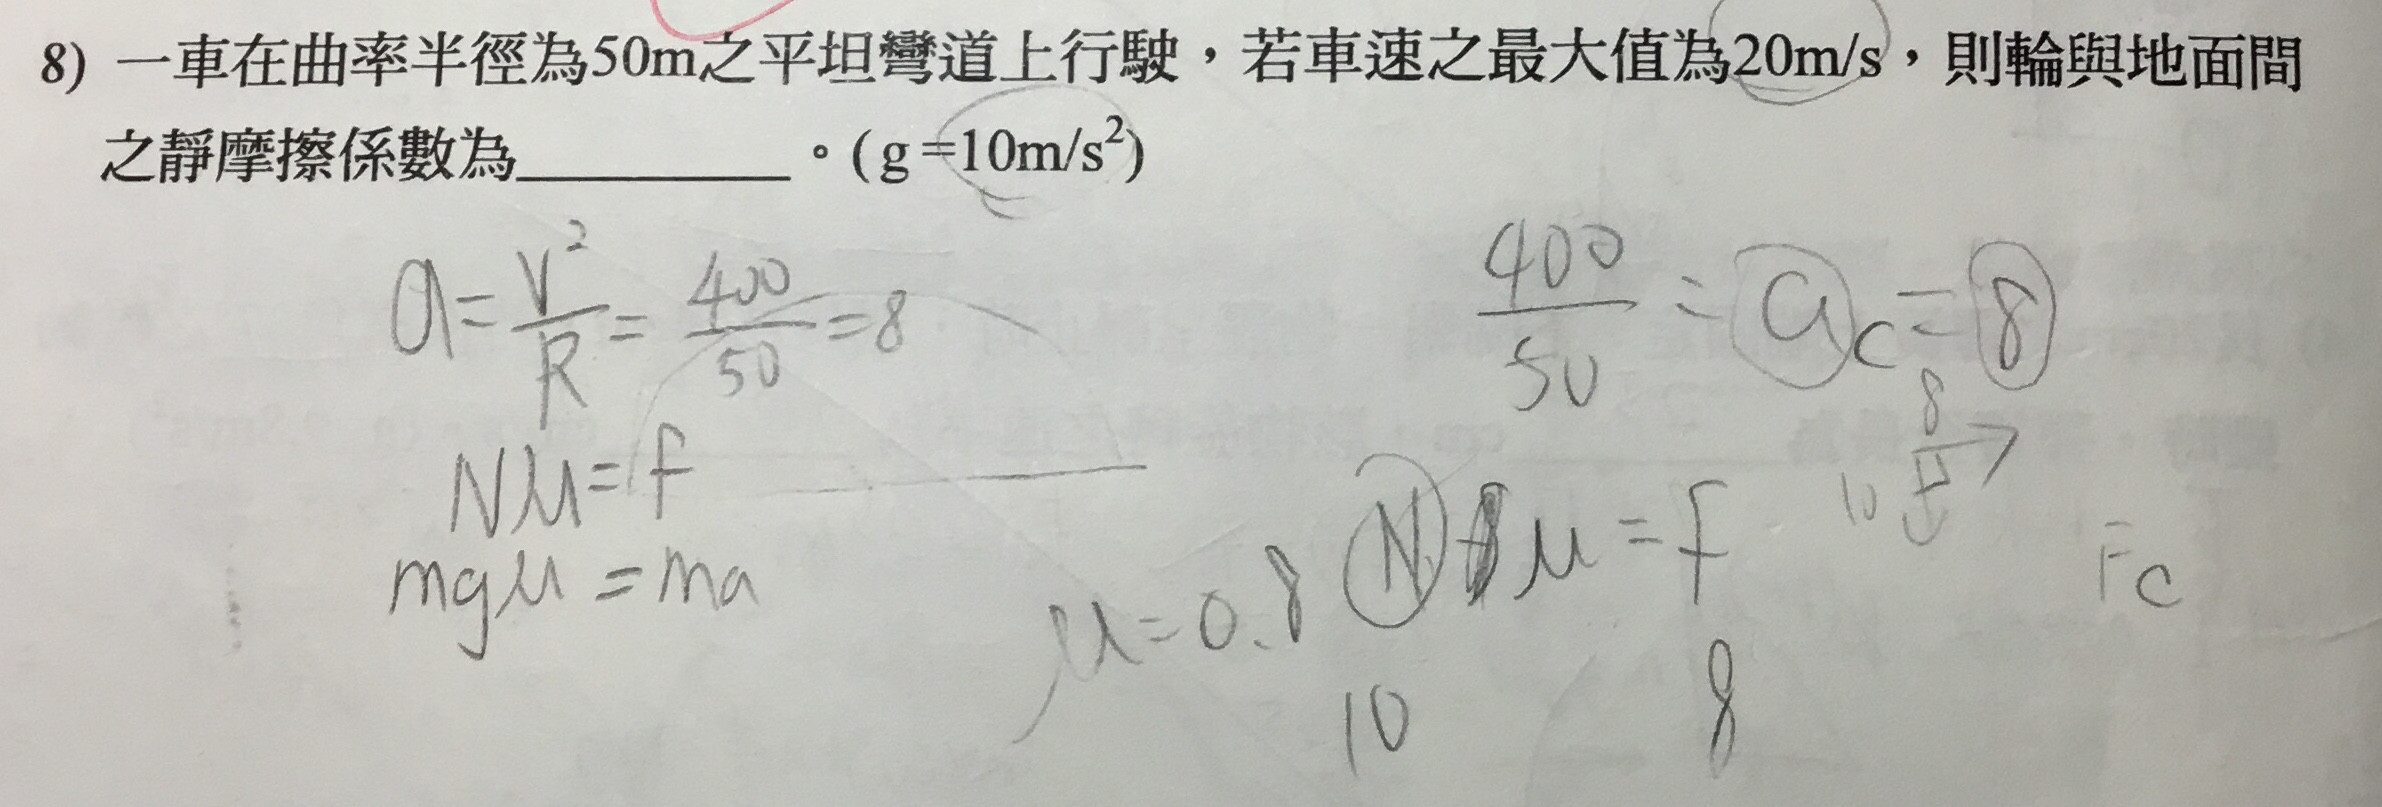 8) 一車在曲率半徑為50m之平坦彎道上行駛，若車速之最大值為20m/s，則輪與地面間
之靜摩擦係數為__________。(g=10m/s²)
a=V²/R=400/50=8
400/50=a_c=8
8
10
Nμ=f
mgμ=ma
N μ=f
F_c
μ=0.8
10
8